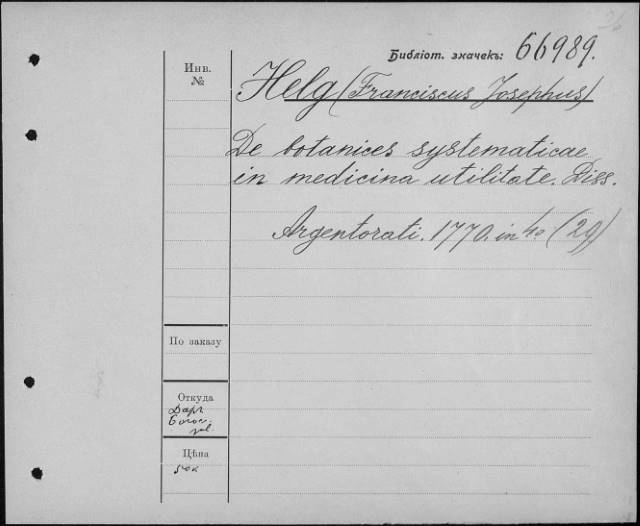 Библіот. значекъ: 66989.
Инв.
№
Helg (Franciscus Josephus)
De botanices systematicae
in medicina utilitate. Diss.
Argentorati. 1770. in 4o (29)
По заказу
Откуда
Цѣна
50к